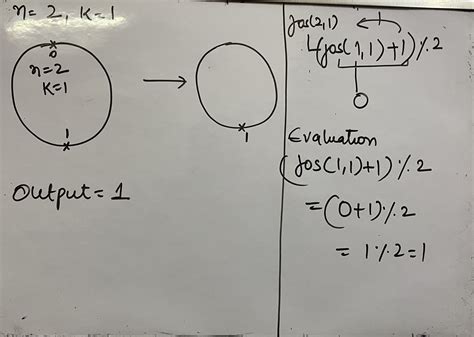 n=2, K=1
0
n=2
K=1
1
1
Output = 1
jos(2,1)
1
(jos(1,1)+1)%2
0
Evaluation
(jos(1,1)+1)%2
=(0+1)%2
= 1%2=1